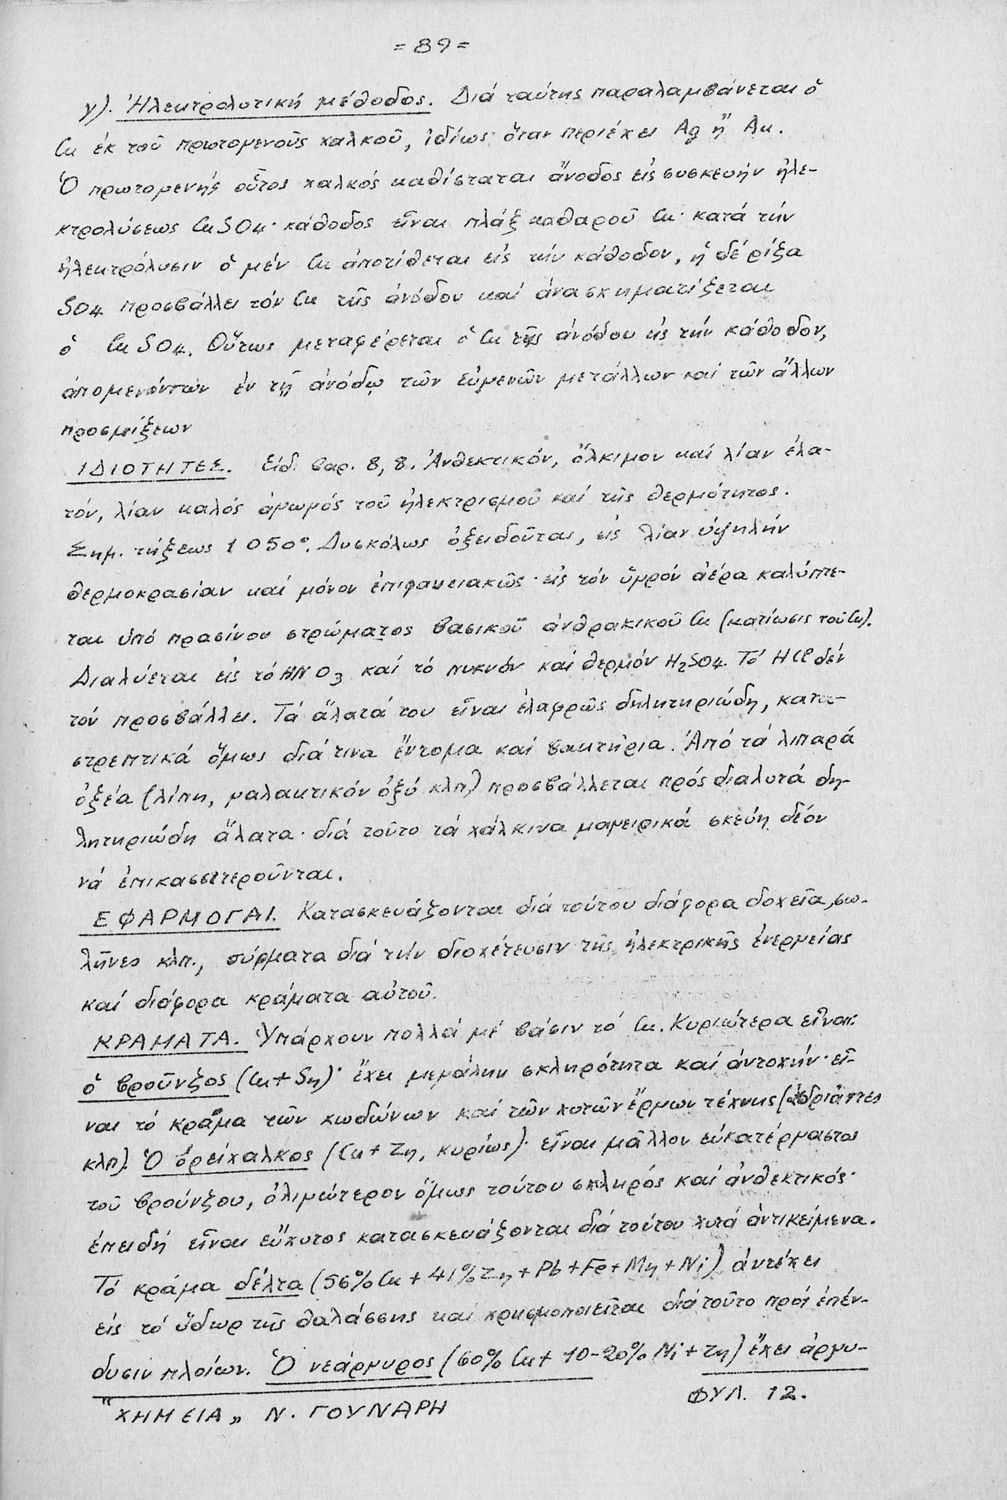 = 89 =
γ). Ἠλεκτρολυτική μέθοδος. Διά ταύτης παραλαμβάνεται ὁ
Cu ἐκ τοῦ πρωτογενοῦς χαλκοῦ, ἰδίως ὅταν περιέχει Ag ἤ Au.
Ὁ πρωτογενής οὗτος χαλκός καθίσταται ἄνοδος εἰς συσκευήν ἠλε-
κτρολύσεως CuSO4· κάθοδος εἶναι πλάξ καθαροῦ Cu· κατά τήν
ἠλεκτρόλυσιν ὁ μέν Cu ἀποτίθεται εἰς τήν κάθοδον, ἡ δέ ρίζα
SO4 προσβάλλει τόν Cu τῆς ἀνόδου καί ἀνασχηματίζεται
ὁ CuSO4. Οὕτως μεταφέρεται ὁ Cu τῆς ἀνόδου εἰς τήν κάθοδον,
ἀπομενόντων ἐν τῇ ἀνόδῳ τῶν εὐγενῶν μετάλλων καί τῶν ἄλλων
προσμείξεων
ΙΔΙΟΤΗΤΕΣ. Εἰδ. βαρ. 8,8. Ἀνθεκτικόν, ὄλκιμον καί λίαν ἐλα-
τόν, λίαν καλός ἀγωγός τοῦ ἠλεκτρισμοῦ καί τῆς θερμότητος.
Σημ. τήξεως 1050°. Δυσκόλως ὀξειδοῦται, εἰς λίαν ὑψηλήν
θερμοκρασίαν καί μόνον ἐπιφανειακῶς· εἰς τόν ὑγρόν ἀέρα καλύπτε-
ται ὑπό πρασίνου στρώματος βασικοῦ ἀνθρακικοῦ Cu (κατίωσις τοῦ Cu).
Διαλύεται εἰς τό HNO3 καί τό πυκνόν καί θερμόν H2SO4. Τό HCl δέν
τόν προσβάλλει. Τά ἅλατά του εἶναι ἐλαφρῶς δηλητηριώδη, κατα-
στρεπτικά ὅμως διά τινα ἔντομα καί βακτήρια. Ἀπό τά λιπαρά
ὀξέα (λίπη, γαλακτικόν ὀξύ κλπ) προσβάλλεται πρός διαλυτά δη-
λητηριώδη ἅλατα· διά τοῦτο τά χάλκινα μαγειρικά σκεύη δέον
νά ἐπικασσιτεροῦνται.
ΕΦΑΡΜΟΓΑΙ. Κατασκευάζονται διά τούτου διάφορα δοχεῖα, σω-
λῆνες κλπ., σύρματα διά τήν διοχέτευσιν τῆς ἠλεκτρικῆς ἐνεργείας
καί διάφορα κράματα αὐτοῦ.
ΚΡΑΜΑΤΑ. Ὑπάρχουν πολλά μέ βάσιν τό Cu. Κυριώτερα εἶναι:
ὁ βροῦνζος (Cu+Sn)· ἔχει μεγάλην σκληρότητα καί ἀντοχήν· εἶ-
ναι τό κρᾶμα τῶν κωδώνων καί τῶν χυτῶν ἔργων τέχνης (ἀνδριάντες
κλπ). Ὁ ὀρείχαλκος (Cu+Zn, κυρίως)· εἶναι μᾶλλον εὐκατέργαστος
τοῦ βρούνζου, ὀλιγώτερον ὅμως τούτου σκληρός καί ἀνθεκτικός·
ἐπειδή εἶναι εὔχυτος κατασκευάζονται διά τούτου χυτά ἀντικείμενα.
Τό κρᾶμα δέλτα (56% Cu + 41% Zn + Pb + Fe + Mn + Ni) ἀντέχει
εἰς τό ὕδωρ τῆς θαλάσσης καί χρησιμοποιεῖται διά τοῦτο πρός ἐπέν-
δυσιν πλοίων. Ὁ νεάργυρος (60% Cu + 10-20% Ni + Zn) ἔχει ἀργυ-
"ΧΗΜΕΙΑ„ Ν. ΓΟΥΝΑΡΗ ΦΥΛ. 12.